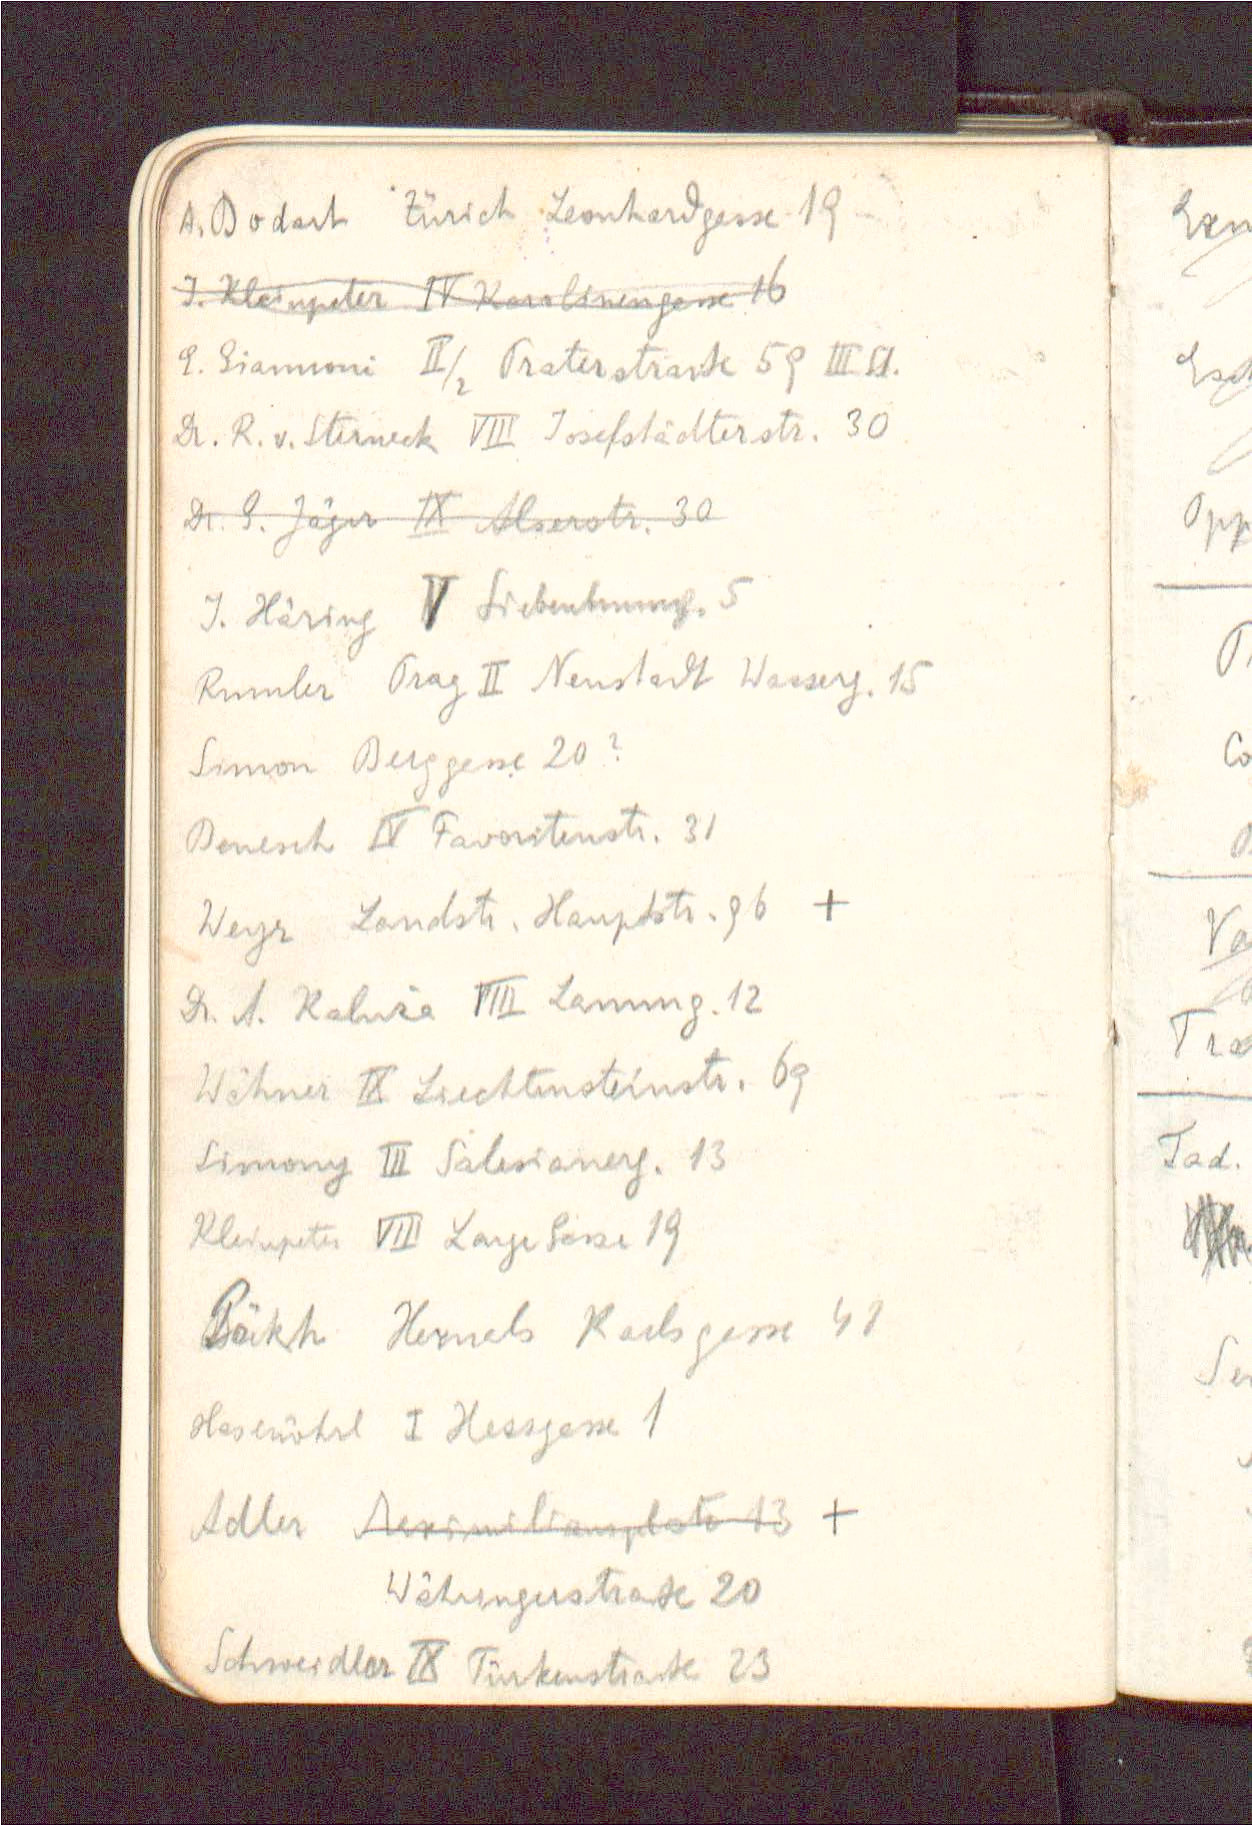 A. Bodart Zürich Leonhardgasse 19
J. Kleinpeter IV Karolinengasse 16
E. Giannoni II/2 Praterstraße 59 III St.
Dr. R. v. Sterneck VIII Josefstädterstr. 30
Dr. G. Jäger IX Alserstr. 30
J. Häring V Siebenbrunng. 5
Rumler Prag II Neustadt Wasserg. 15
Simon Berggasse 20?
Benesch IV Favoritenstr. 31
Weyr Landstr. Hauptstr. 96 +
Dr. A. Kaluža VIII Lammg. 12
Wähner IX Liechtensteinstr. 69
Simony III Salesianerg. 13
Kleinpeter VIII Lange Gasse 19
Böckh Hernals Karlsgasse 41
Hasenöhrl I Hessgasse 1
Adler Maximiliansplatz 13 +
Währingerstraße 20
Schweidler IX Türkenstraße 23
Opp
Co
Va
Tra
Tad.